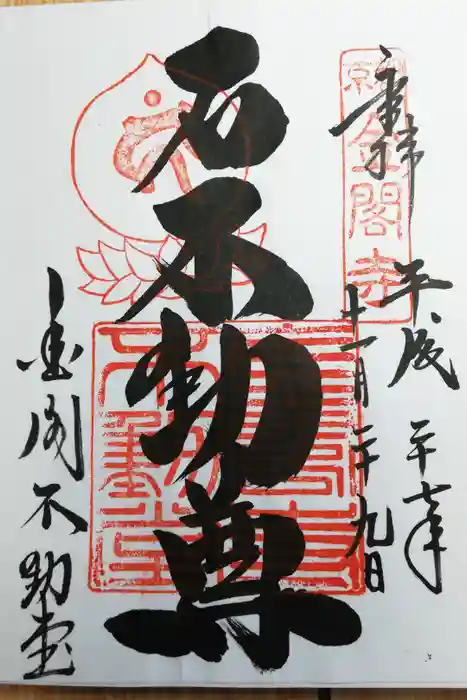 奉拝
平成二十七年
十一月二十九日
石不動尊
金閣不動堂
金閣寺
不動堂